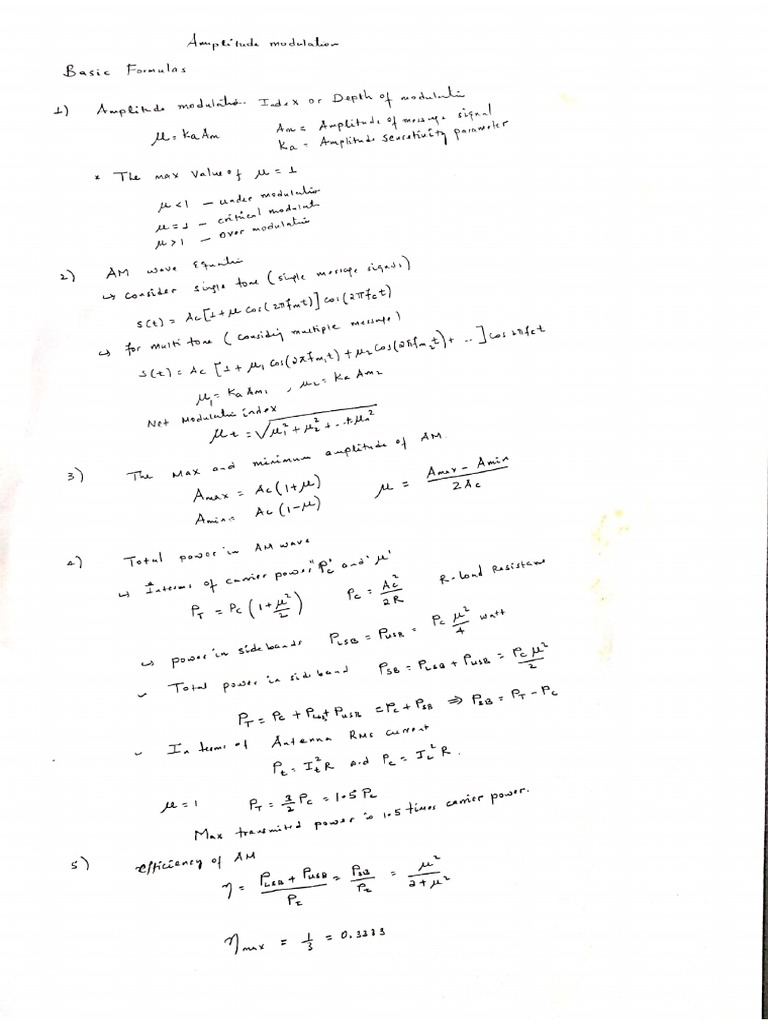 Amplitude modulation
Basic Formulas
1) Amplitude modulation Index or Depth of modulatin
μ = Ka Am    Am = Amplitude of message signal
Ka = Amplitude sensitivity parameter
* The max value of μ = 1
μ < 1 – under modulatio
μ = 1 – critical modulati
μ > 1 – over modulatio
2) AM wave Equatio
↳ consider single tone (single message signal)
s(t) = Ac [1 + μ cos(2πfmt)] cos(2πfct)
↳ for multi tone (considing multiple message)
s(t) = Ac [1 + μ1 cos(2πfm1t) + μ2 cos(2πfm2t) + ..] cos 2πfct
μ1 = Ka Am1 , μ2 = Ka Am2
Net Modulatio index
μt = √(μ1² + μ2² + ... + μn²)
3) The Max and minimum amplitude of AM
Amax = Ac(1+μ)    μ = (Amax − Amin)/2Ac
Amin = Ac(1−μ)
4) Total power in AM wave
↳ Interms of carrier power "Pc" and 'μ'
PT = Pc (1 + μ²/2)    Pc = Ac²/2R    R - Load Resistans
↳ power in side bands    PLSB = PUSB = Pc μ²/4 watt
Total power in sid band    PSB = PLSB + PUSB = Pc μ²/2
PT = Pc + PLSB + PUSB = Pc + PSB ⇒ PSB = PT − Pc
In terms of Antenna RMS current
Pt = It² R and Pc = Ic² R.
μ = 1    PT = 3/2 Pc = 1.5 Pc
Max transmitted power is 1.5 times carrier power.
5) efficiency of AM
η = (PLSB + PUSB)/Pt = PSB/Pt = μ²/(2+μ²)
ηmax = 1/3 = 0.3333